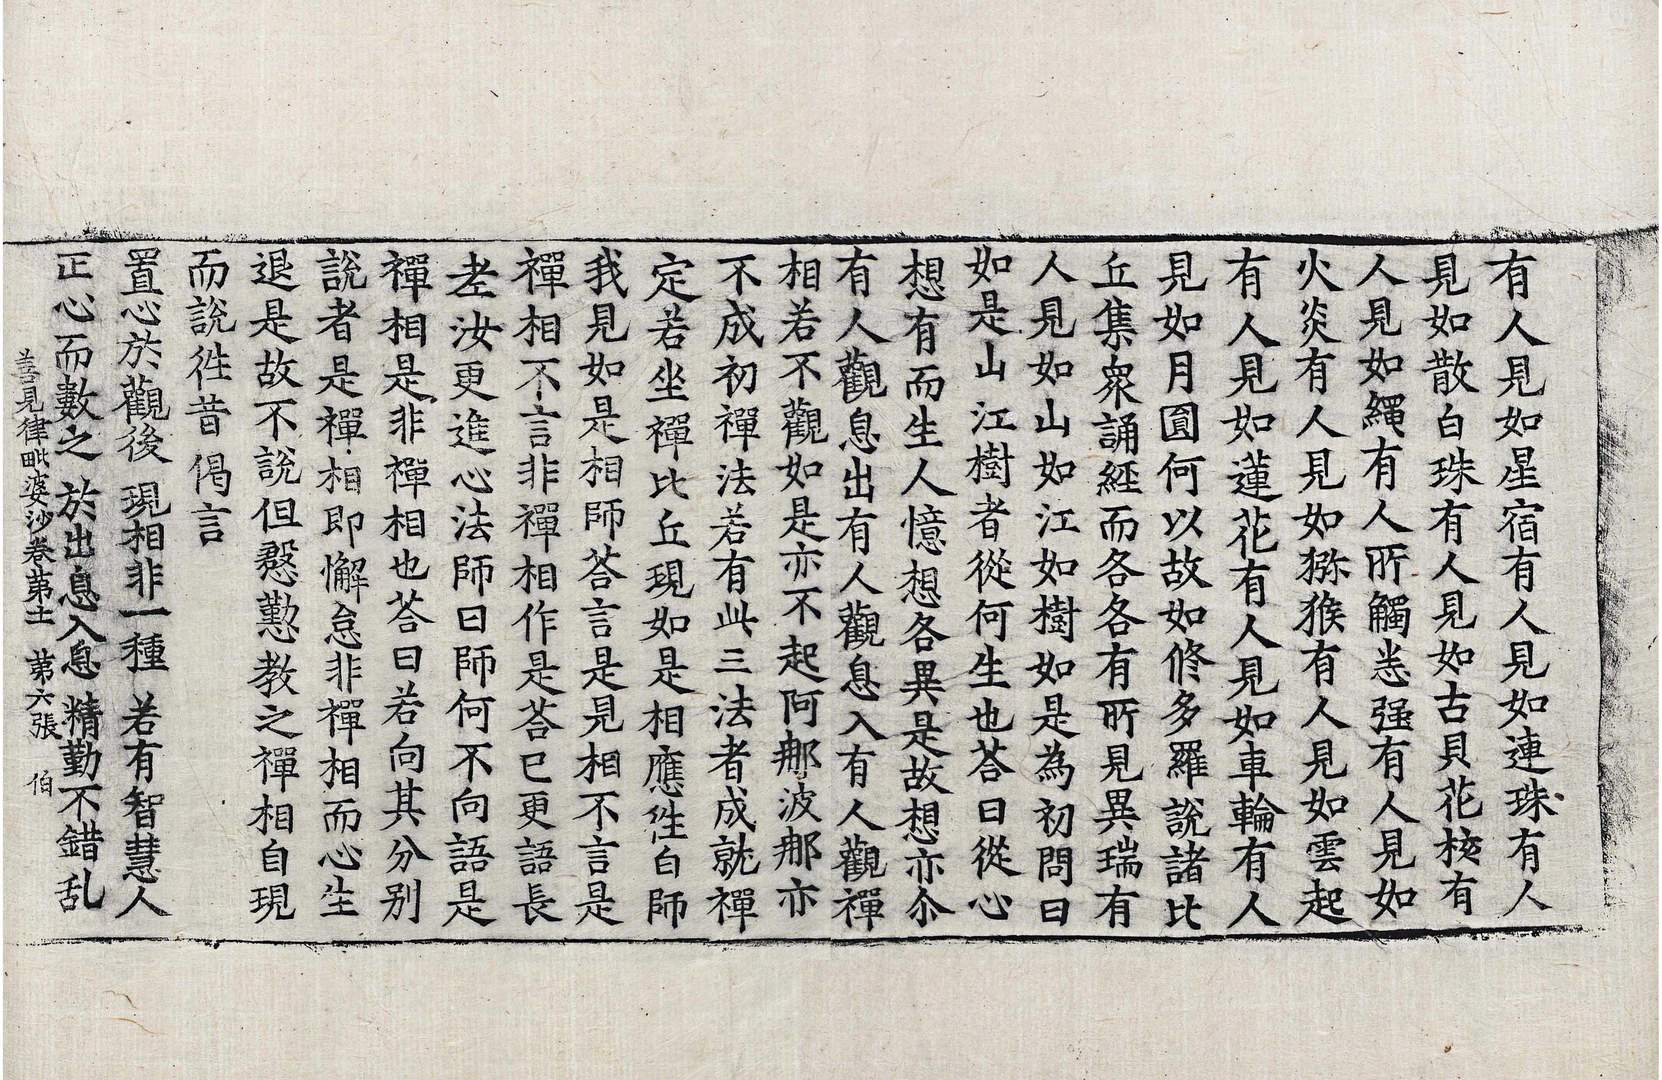 有人見如星宿有人見如連珠有人
見如散白珠有人見如古貝花核有
人見如繩有人所觸恙强有人見如
火炎有人見如猕猴有人見如雲起
有人見如蓮花有人見如車輪有人
見如月圎何以故如修多羅說諸比
丘集衆誦經而各各有所見異瑞有
人見如山如江如樹如是為初問曰
如是山江樹者從何生也荅曰從心
想有而生人憶想各異是故想亦尒
有人觀息出有人觀息入有人觀禪
相若不觀如是亦不起阿那波那亦
不成初禪法若有此三法者成就禪
定若坐禪比丘現如是相應徃白師
我見如是相師荅言是見相不言是
禪相不言非禪相作是荅已更語長
老汝更進心法師曰師何不向語是
禪相是非禪相也荅曰若向其分别
說者是禪相即懈怠非禪相而心生
退是故不說但慇懃教之禪相自現
而說徃昔偈言
置心於觀後 現相非一種 若有智慧人
正心而數之 於出息入息 精勤不錯乱
善見律毗婆沙卷第十一 第六張 伯